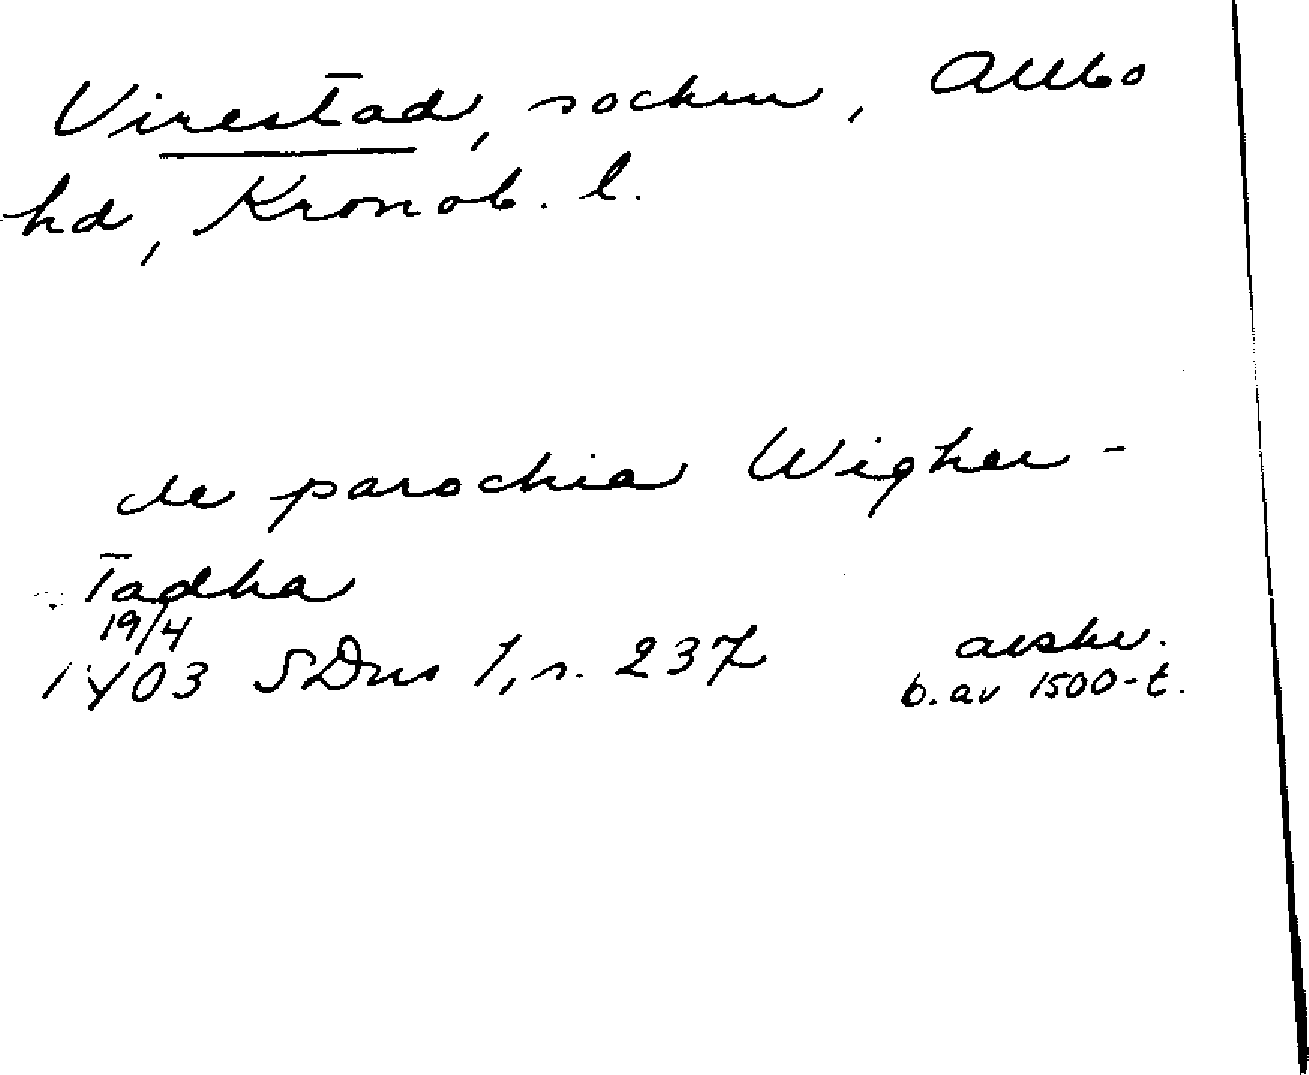 Virestad, socken, Allbo
hd, Kronob. l.
de parochia Wigher-
stadha
19/4
1403 SDns 1, s. 237 avskr.
b. av 1500-t.